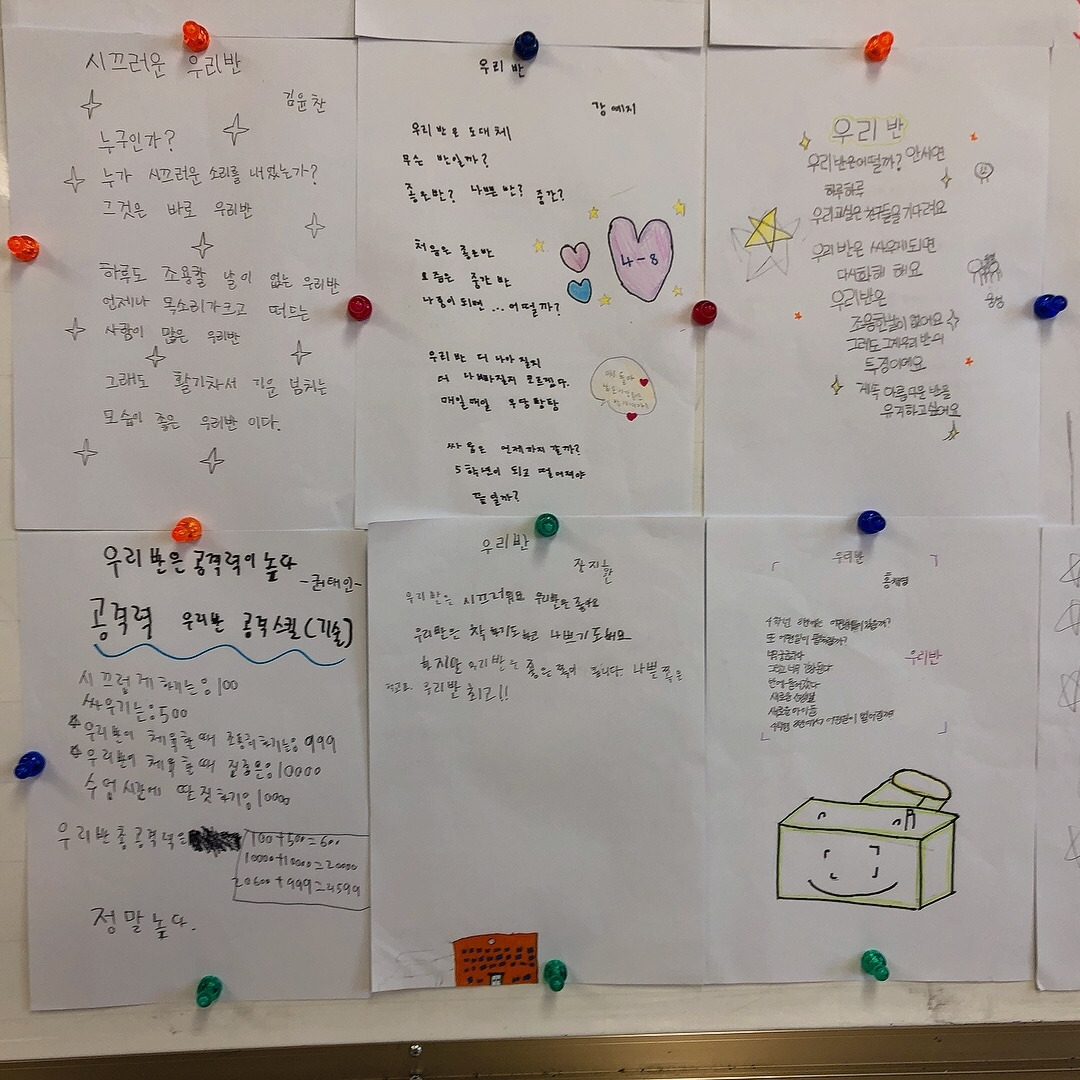 시끄러운 우리반
김윤찬
누구인가?
누가 시끄러운 소리를 내었는가?
그것은 바로 우리반
하루도 조용할 날이 없는 우리반
언제나 목소리가크고 떠드는
사람이 많은 우리반
그래도 활기차서 기운 넘치는
모습이 좋은 우리반 이다.
우리 반
강예지
우리 반은 도대체
무슨 반일까?
좋은반? 나쁜 반? 중간?
처음은 좋은반
요즘은 중간 반
나중이 되면... 어떨까?
4-8
우리 반 더 나아 질지
더 나빠질지 모르겠다.
매일매일 우당탕탕
싸움은 언제까지 갈까?
5학년이 되고 떨어져야
끝일까?
우리 반
우리 반은어떨까? 안서연
하루하루
우리교실은 친구들을기다려요
우리 반은 싸우게되면
다시화해 해요
우리반은
조용한날이 없어요
그래도 그게우리 반의
특징이에요
계속 아름다운 반을
유지하고싶어요
우리 반은 공격력이 높다
-권태인-
공격력 우리반 공격스킬(기술)
시끄럽게 하기는:100
싸우기는:500
우리반이 체육할 때 조용히하기는:999
우리반이 체육할 때 집중은:10000
수업시간에 딴짓하기:10000
우리반총공격력은
100+500=600
10000+10000=20000
20600+999=21599
정말높다.
우리반
장지환
우리반은 시끄러워요 우리반은 좋아요
우리반은 착하기도하고 나쁘기도해요
하지만 우리 반는 좋은쪽이 됩니다. 나쁜쪽은
적고요. 우리반 최고!!
우리반
홍채영
4학년 8반에는 어떤일들이 있을까?
또 어떤일이 펼쳐질까?
너무궁금하다
그리고 너무 긴장된다
반에 들어갔다
새로운 선생님
새로운 아이들
4학년 8반에서 어떤일이 벌어질까?
우리반